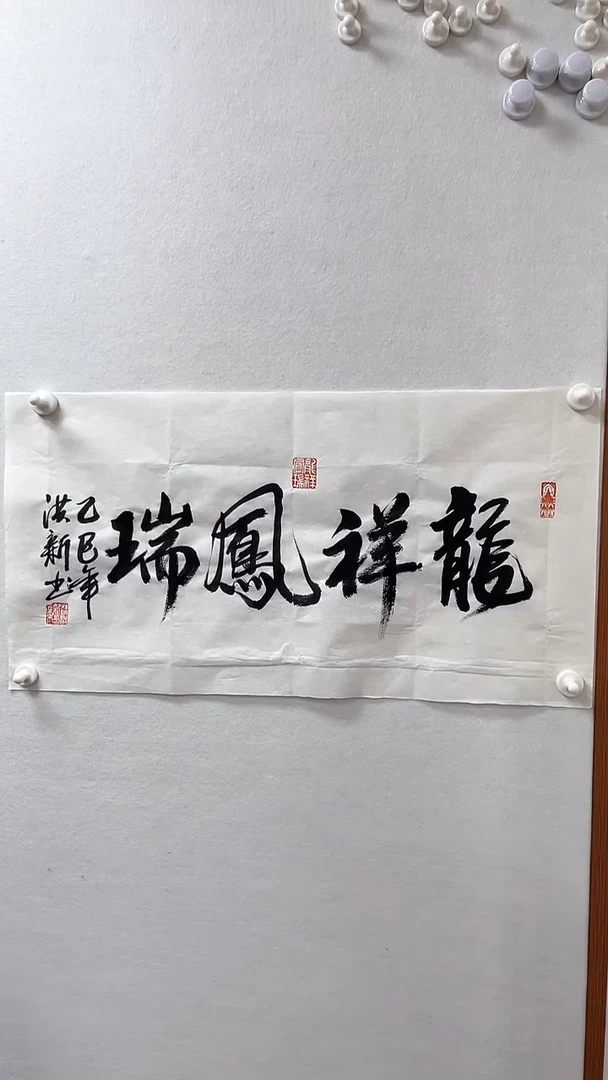 龍祥鳳瑞
乙巳年
洪新书